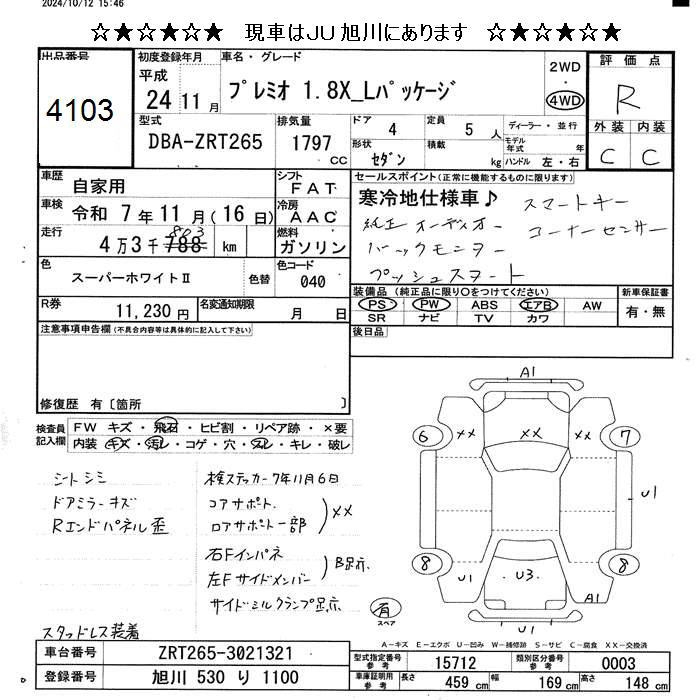 2024/10/12 15:46
☆★☆★☆★ 現車はJU旭川にあります ☆★☆★☆★
出品番号
4103
初度登録年月
平成
24 11 月
車名・グレード
プレミオ 1.8X_Lパッケージ
2WD
・
4WD
評価点
R
外装 内装
C C
型式
DBA-ZRT265
排気量
1797
CC
ドア 4
定員 5 人
形状 セダン
積載 kg
ディーラー・並行
モデル年式 年
ハンドル 左・右
車歴
自家用
シフト
FAT
車検
令和 7年 11月 (16日)
冷房
AAC
走行
4万3千788 km
803
燃料
ガソリン
色
スーパーホワイトⅡ
色替
色コード
040
R券
11,230円
名変通知期限
月 日
セールスポイント(正常に機能するものに限ります)
寒冷地仕様車♪ スマートキー
純正オーディオ コーナーセンサー
バックモニター
プッシュスタート
装備品 (純正品に限り○をつけてください)
PS PW ABS エアB AW
SR ナビ TV カワ
新車保証書
有・無
後日品
注意事項申告欄(不具合内容等は具体的に記入して下さい)
修復歴 有〔箇所 〕
検査員記入欄
FW キズ・飛石・ヒビ割・リペア跡・×要
内装・キズ・汚レ・コゲ・穴・スレ・キレ・破レ
シートシミ
ドアミラーキズ
Rエンドパネル歪
スタッドレス装着
検ステッカー7年11月6日
コアサポート
ロアサポート一部
××
右Fインパネ
左Fサイドメンバー
B跡
サイドシルクランプ跡
有
スペア
A1
6
××
××
××
7
U1
8
U1
U3
8
A1
U1
A-キズ E-エクボ U-凹み W-補修跡 S-サビ C-腐食 XX-交換済
車台番号
ZRT265-3021321
登録番号
旭川 530 り 1100
型式指定番号 参考
15712
類別区分番号 参考
0003
車庫証明用 参考
長さ 459 cm
幅 169 cm
高さ 148 cm